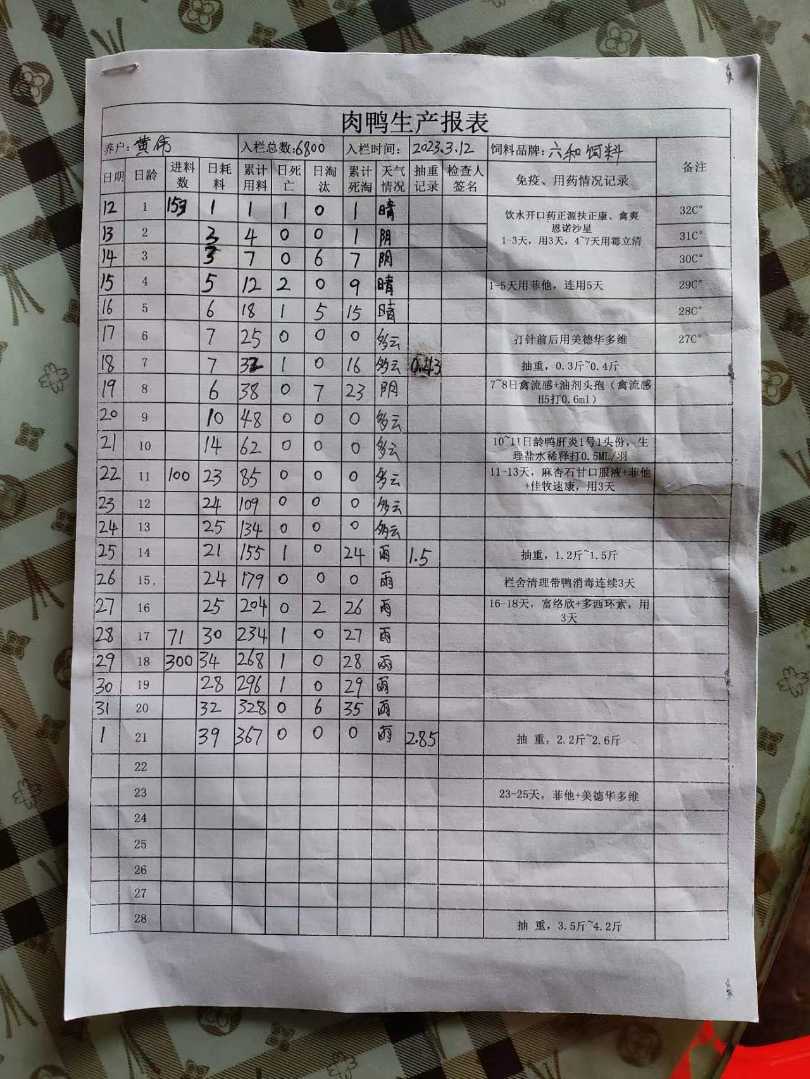 肉鸭生产报表
养户: 黄伟 入栏总数:6800 入栏时间: 2023.3.12 饲料品牌: 六和饲料 备注
日期 日龄 进料数 日耗料 累计用料 日死亡 日淘汰 累计死淘 天气情况 抽重记录 检查人签名 免疫、用药情况记录
12 1 153 1 1 1 0 1 晴 饮水开口药正源扶正康、禽爽 32C°
恩诺沙星
13 2 3 4 0 0 1 阴 1-3天，用3天，4~7天用霉立清 31C°
14 3 3 7 0 6 7 阴 30C°
15 4 5 12 2 0 9 晴 1-5天用菲他，连用5天 29C°
16 5 6 18 1 5 15 晴 28C°
17 6 7 25 0 0 0 多云 打针前后用美德华多维 27C°
18 7 7 32 1 0 16 多云 0.43 抽重，0.3斤~0.4斤
19 8 6 38 0 7 23 阴 7~8日禽流感+油剂头孢（禽流感
H5打0.6ml）
20 9 10 48 0 0 0 多云
21 10 14 62 0 0 0 多云 10~11日龄鸭肝炎1号1头份，生
理盐水稀释打0.5ML/羽
22 11 100 23 85 0 0 0 多云 11-13天，麻杏石甘口服液+菲他
+佳牧速康，用3天
23 12 24 109 0 0 0 多云
24 13 25 134 0 0 0 多云
25 14 21 155 1 0 24 雨 1.5 抽重，1.2斤~1.5斤
26 15 24 179 0 0 0 雨 栏舍清理带鸭消毒连续3天
27 16 25 204 0 2 26 雨 16-18天，富络欣+多西环素，用
3天
28 17 71 30 234 1 0 27 雨
29 18 300 34 268 1 0 28 雨
30 19 28 296 1 0 29 雨
31 20 32 328 0 6 35 雨
1 21 39 367 0 0 0 雨 2.85 抽 重，2.2斤~2.6斤
22
23 23-25天，菲他+美德华多维
24
25
26
27
28 抽 重，3.5斤~4.2斤